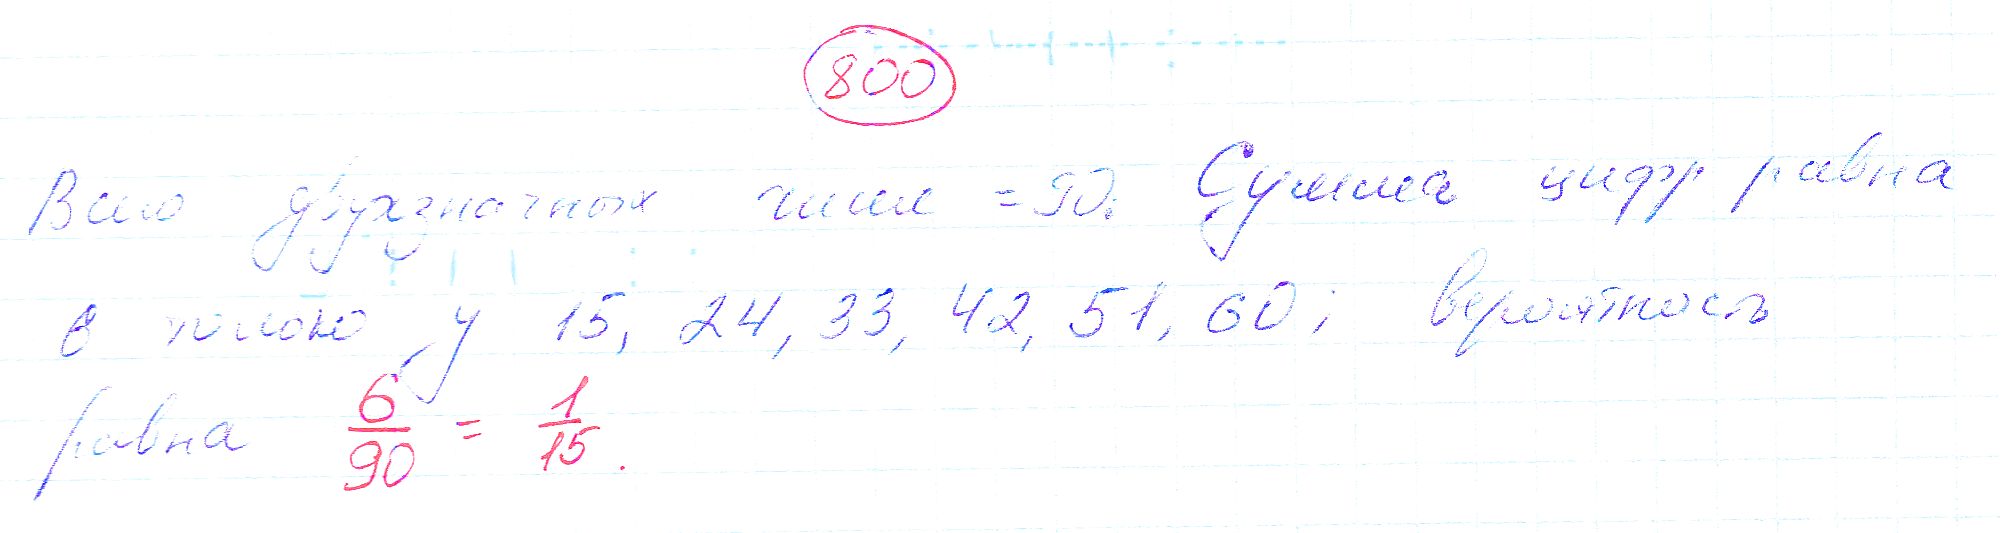 800
Всего двухзначных чисел = 90. Сумма цифр равна
6 только у 15, 24, 33, 42, 51, 60; вероятность
равна 6/90 = 1/15.